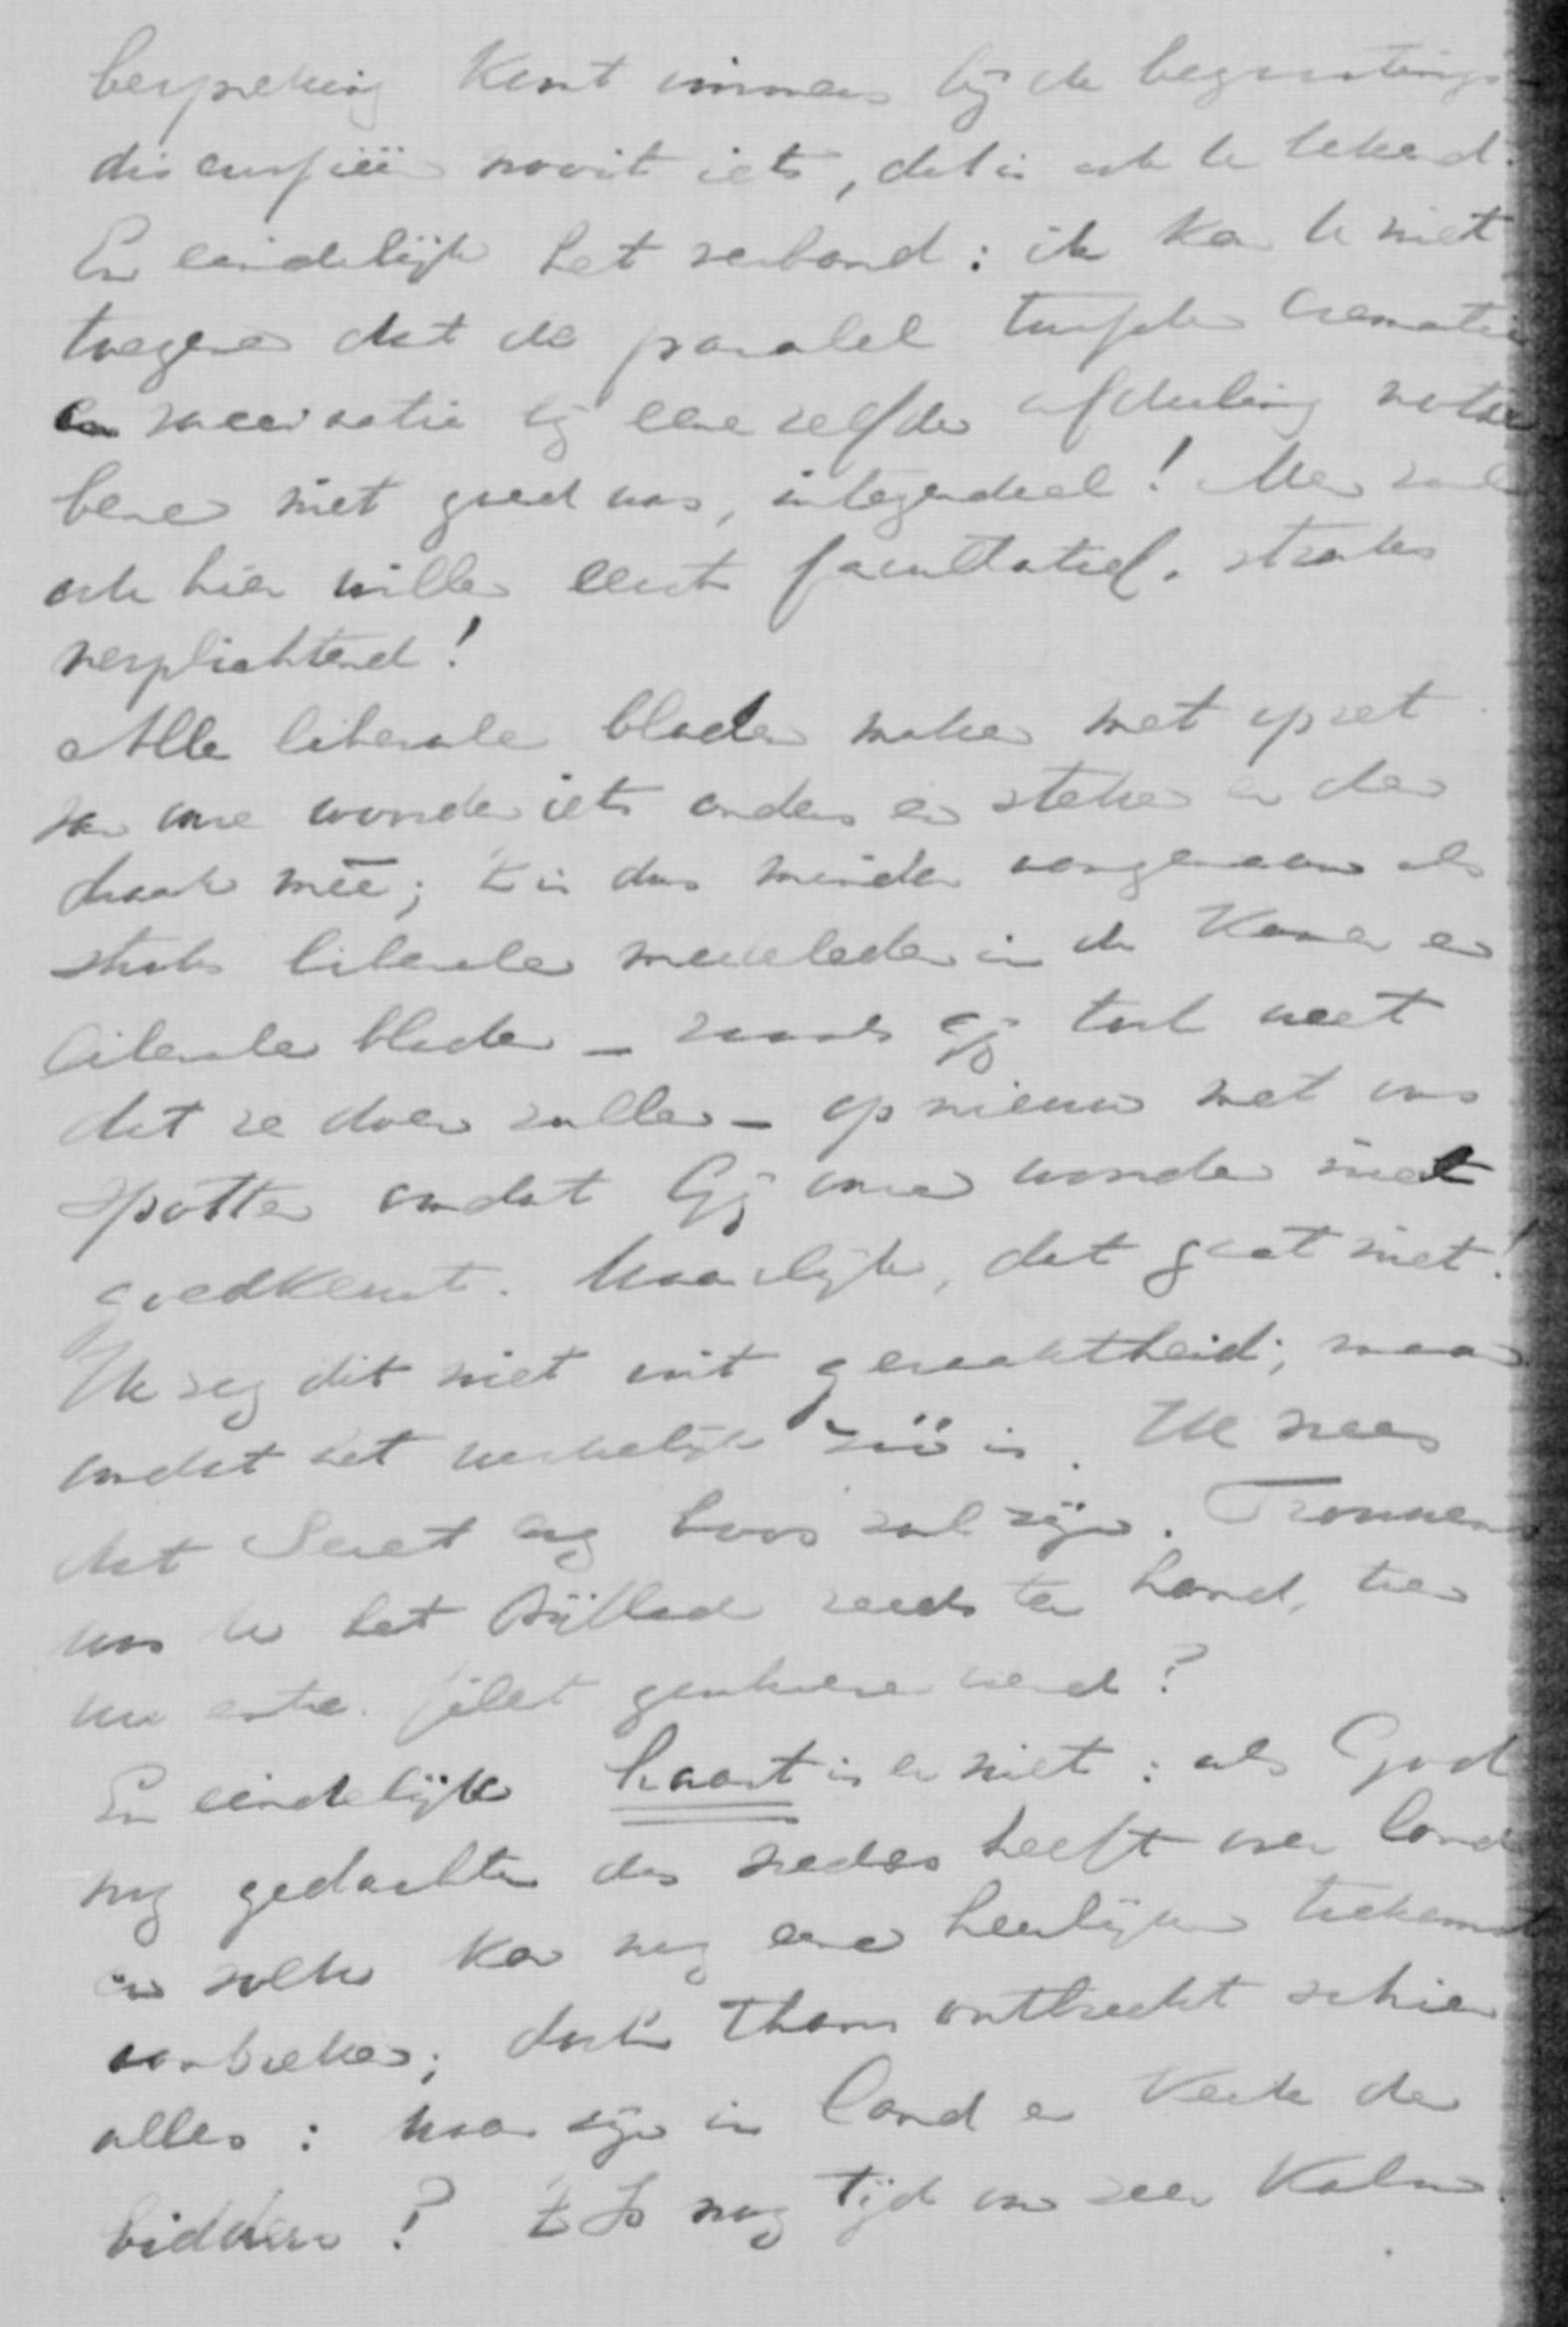 bespreking komt immers bij de begrootings
discussieën nooit iets, dat is ook te bekend.
En eindelijk het verband: ik kan U niet
toegeven dat de paralel tusschen Crematie
en vaccinatie bij eene zelfde afdeeling notae
bene niet goed was, integendeel! Men zal
ook hier willen eerst facultatief. straks
verplichtend!
Alle liberale bladen maken met opzet
van onze wonde iets anders en steken er den
draak meê; 't is dus minder aangenaam als
straks liberale medeleden in de Kamer en
liberale bladen – zooals gij toch weet
dat ze doen zullen – op nieuw met ons
spotten omdat Gij onze wonde niet
goedkeurt. Waarlijk, dat gaat niet!
Ik zeg dit niet uit geraaktheid; maar
omdat het werkelijk zóó is. Ik vrees
dat Seret erg boos zal zijn. Trouwens
was U het Bijblad reeds ter hand, toen
uw gesproken werd?
En eindelijk haast is er niet: als God
nog gedachten des vredes heeft over land
en volk kan nog eene heerlijke toekomst
aanbreken; doch thans ontbreekt schier
alles: waar zijn in land en Kerk de
bidders? 't Is nog tijd om zeer Kalm